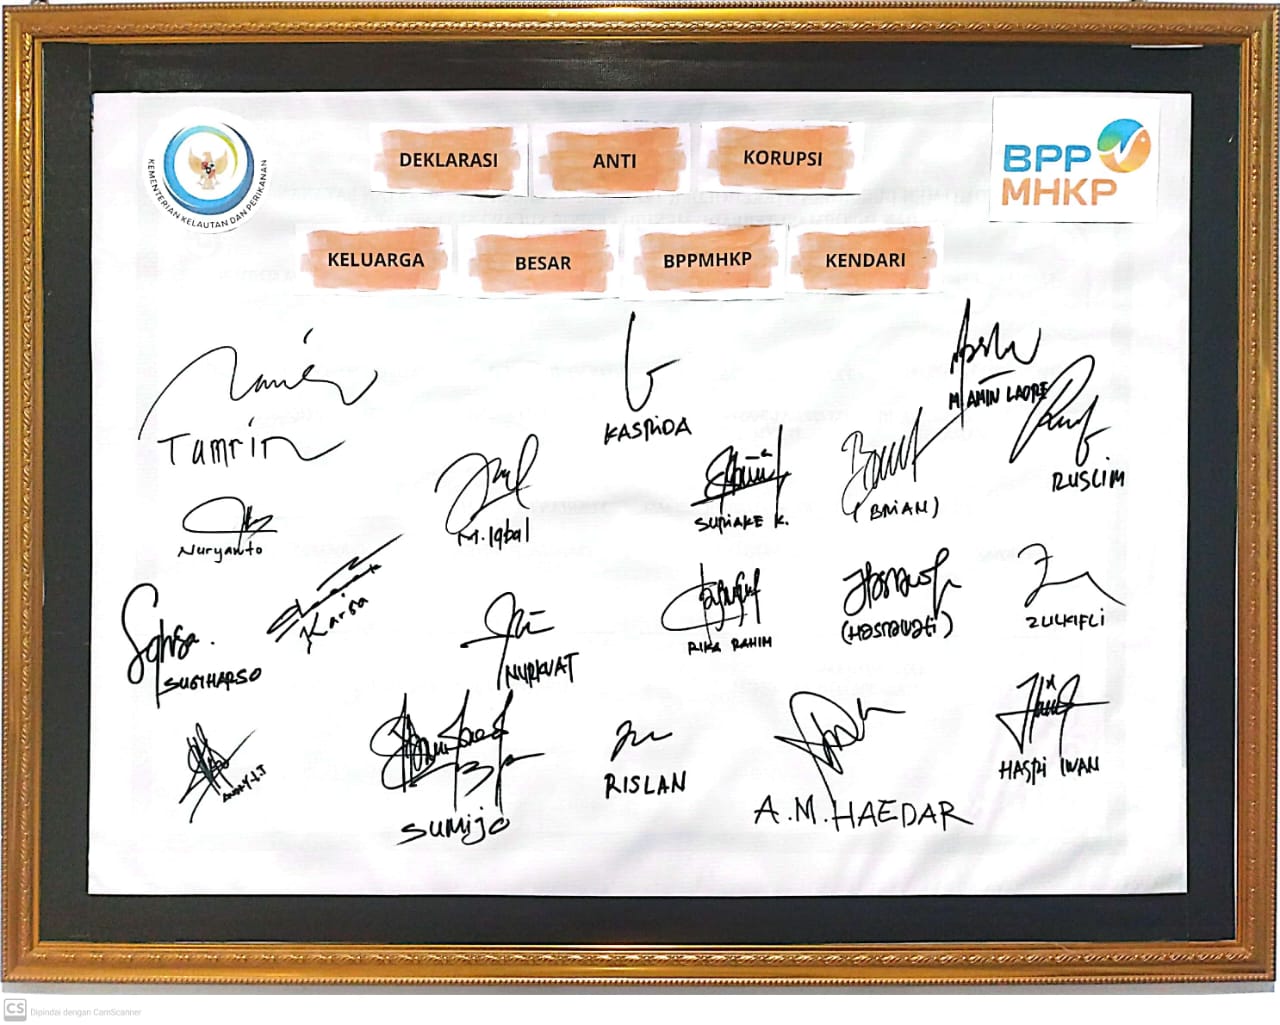 KEMENTERIAN KELAUTAN DAN PERIKANAN
DEKLARASI ANTI KORUPSI
BPP
MHKP
KELUARGA BESAR BPPMHKP KENDARI
Tamrin
KASPIDA
M. AMIN LAORE
RUSLIM
Nuryanto
M. Iqbal
SUPIAKE K.
(BRIAN)
SUGIHARSO
Karisa
NURKUAT
RIKA RAHIM
(Hasrawati)
ZULKIFLI
SUMIJO
RISLAN
A.M. HAEDAR
HASRI IWAN
CS Dipindai dengan CamScanner